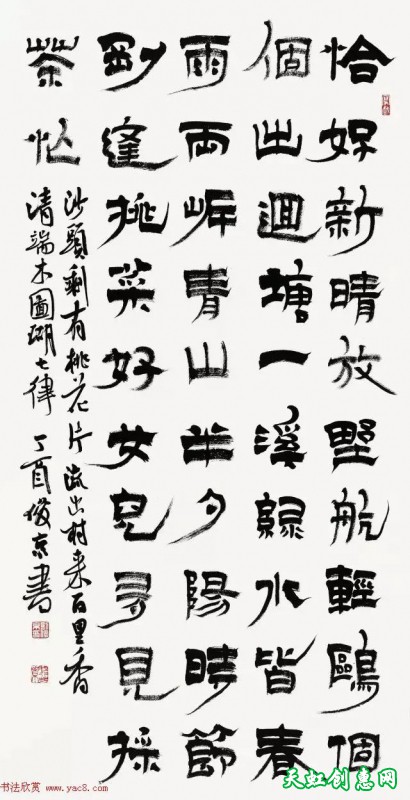 恰好新晴放野航輕鷗個
個出迴塘一溪綠水皆春
雨兩岸青山半夕陽時節
剛逢挑菜好女兒多見採
茶忙
沙頭剩有桃花片流出村來百里香
清端木國瑚七律 丁酉俊京書
书法欣赏 www.yac8.com
天虹创惠网